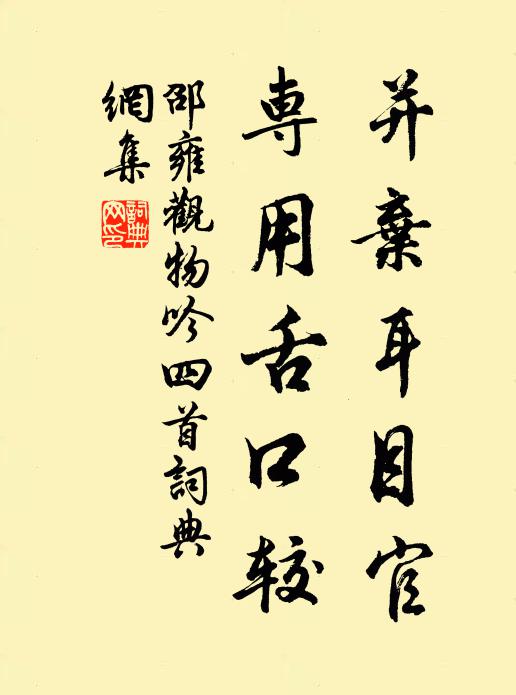 并棄耳目官
専用舌口較
邵雍觀物吟四首詞典
網集
詞典
网印